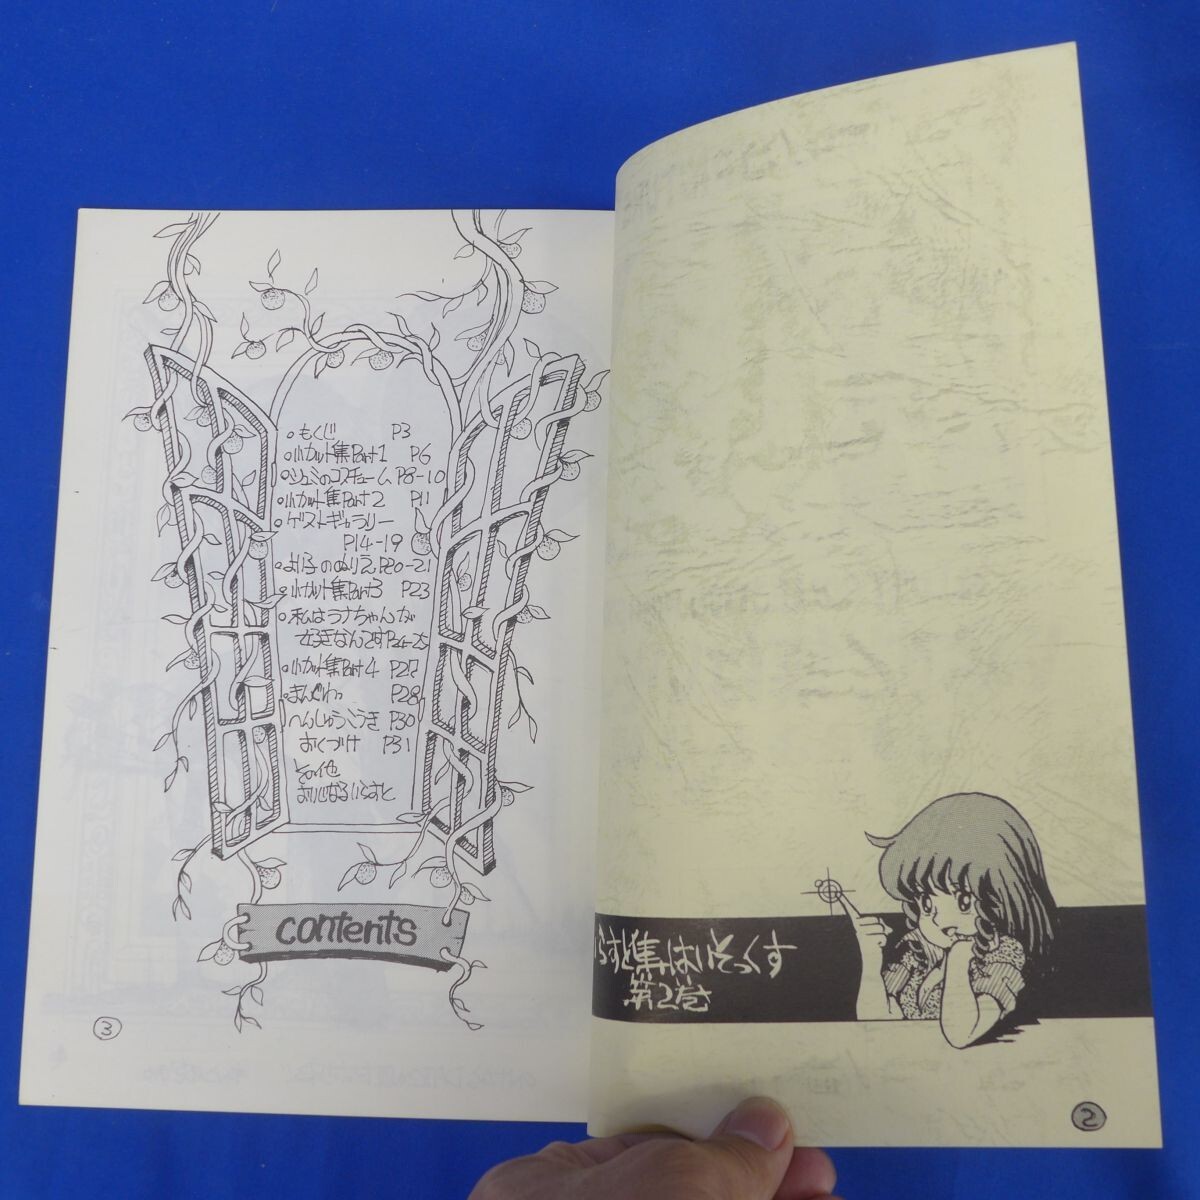 らすと集はいそっくす
第2巻
2
・もくじ P3
・小カット集Part1 P6
・シュミのコスチューム P8-10
・小カット集Part2 P11
・ゲストギャラリー
P14-19
・よい子のぬりえ P20-21
・小カット集Part3 P23
・私はラナちゃんが
好きなんです P24-25
・小カット集Part4 P27
・まんぐわ P28
・へんしゅうこうき P30
おくづけ P31
その他
おりじなるいらすと
contents
3